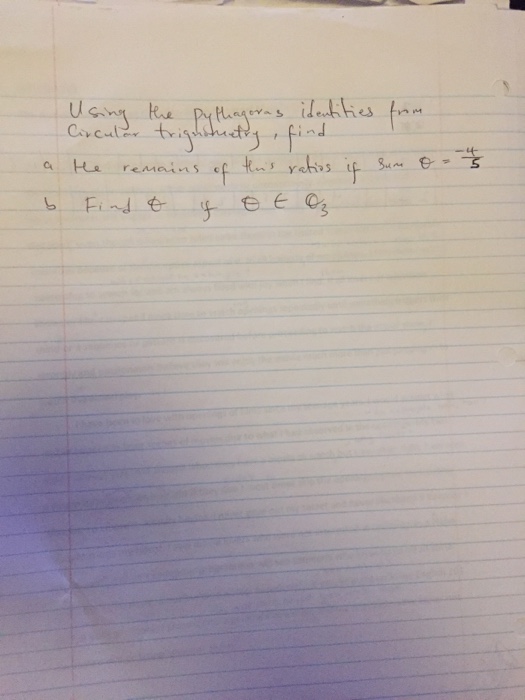 Using the pythagoras identities from
Circular trigonometry, find
a the remains of this ratios if sum θ = -4/5
b Find θ if θ ∈ Q3